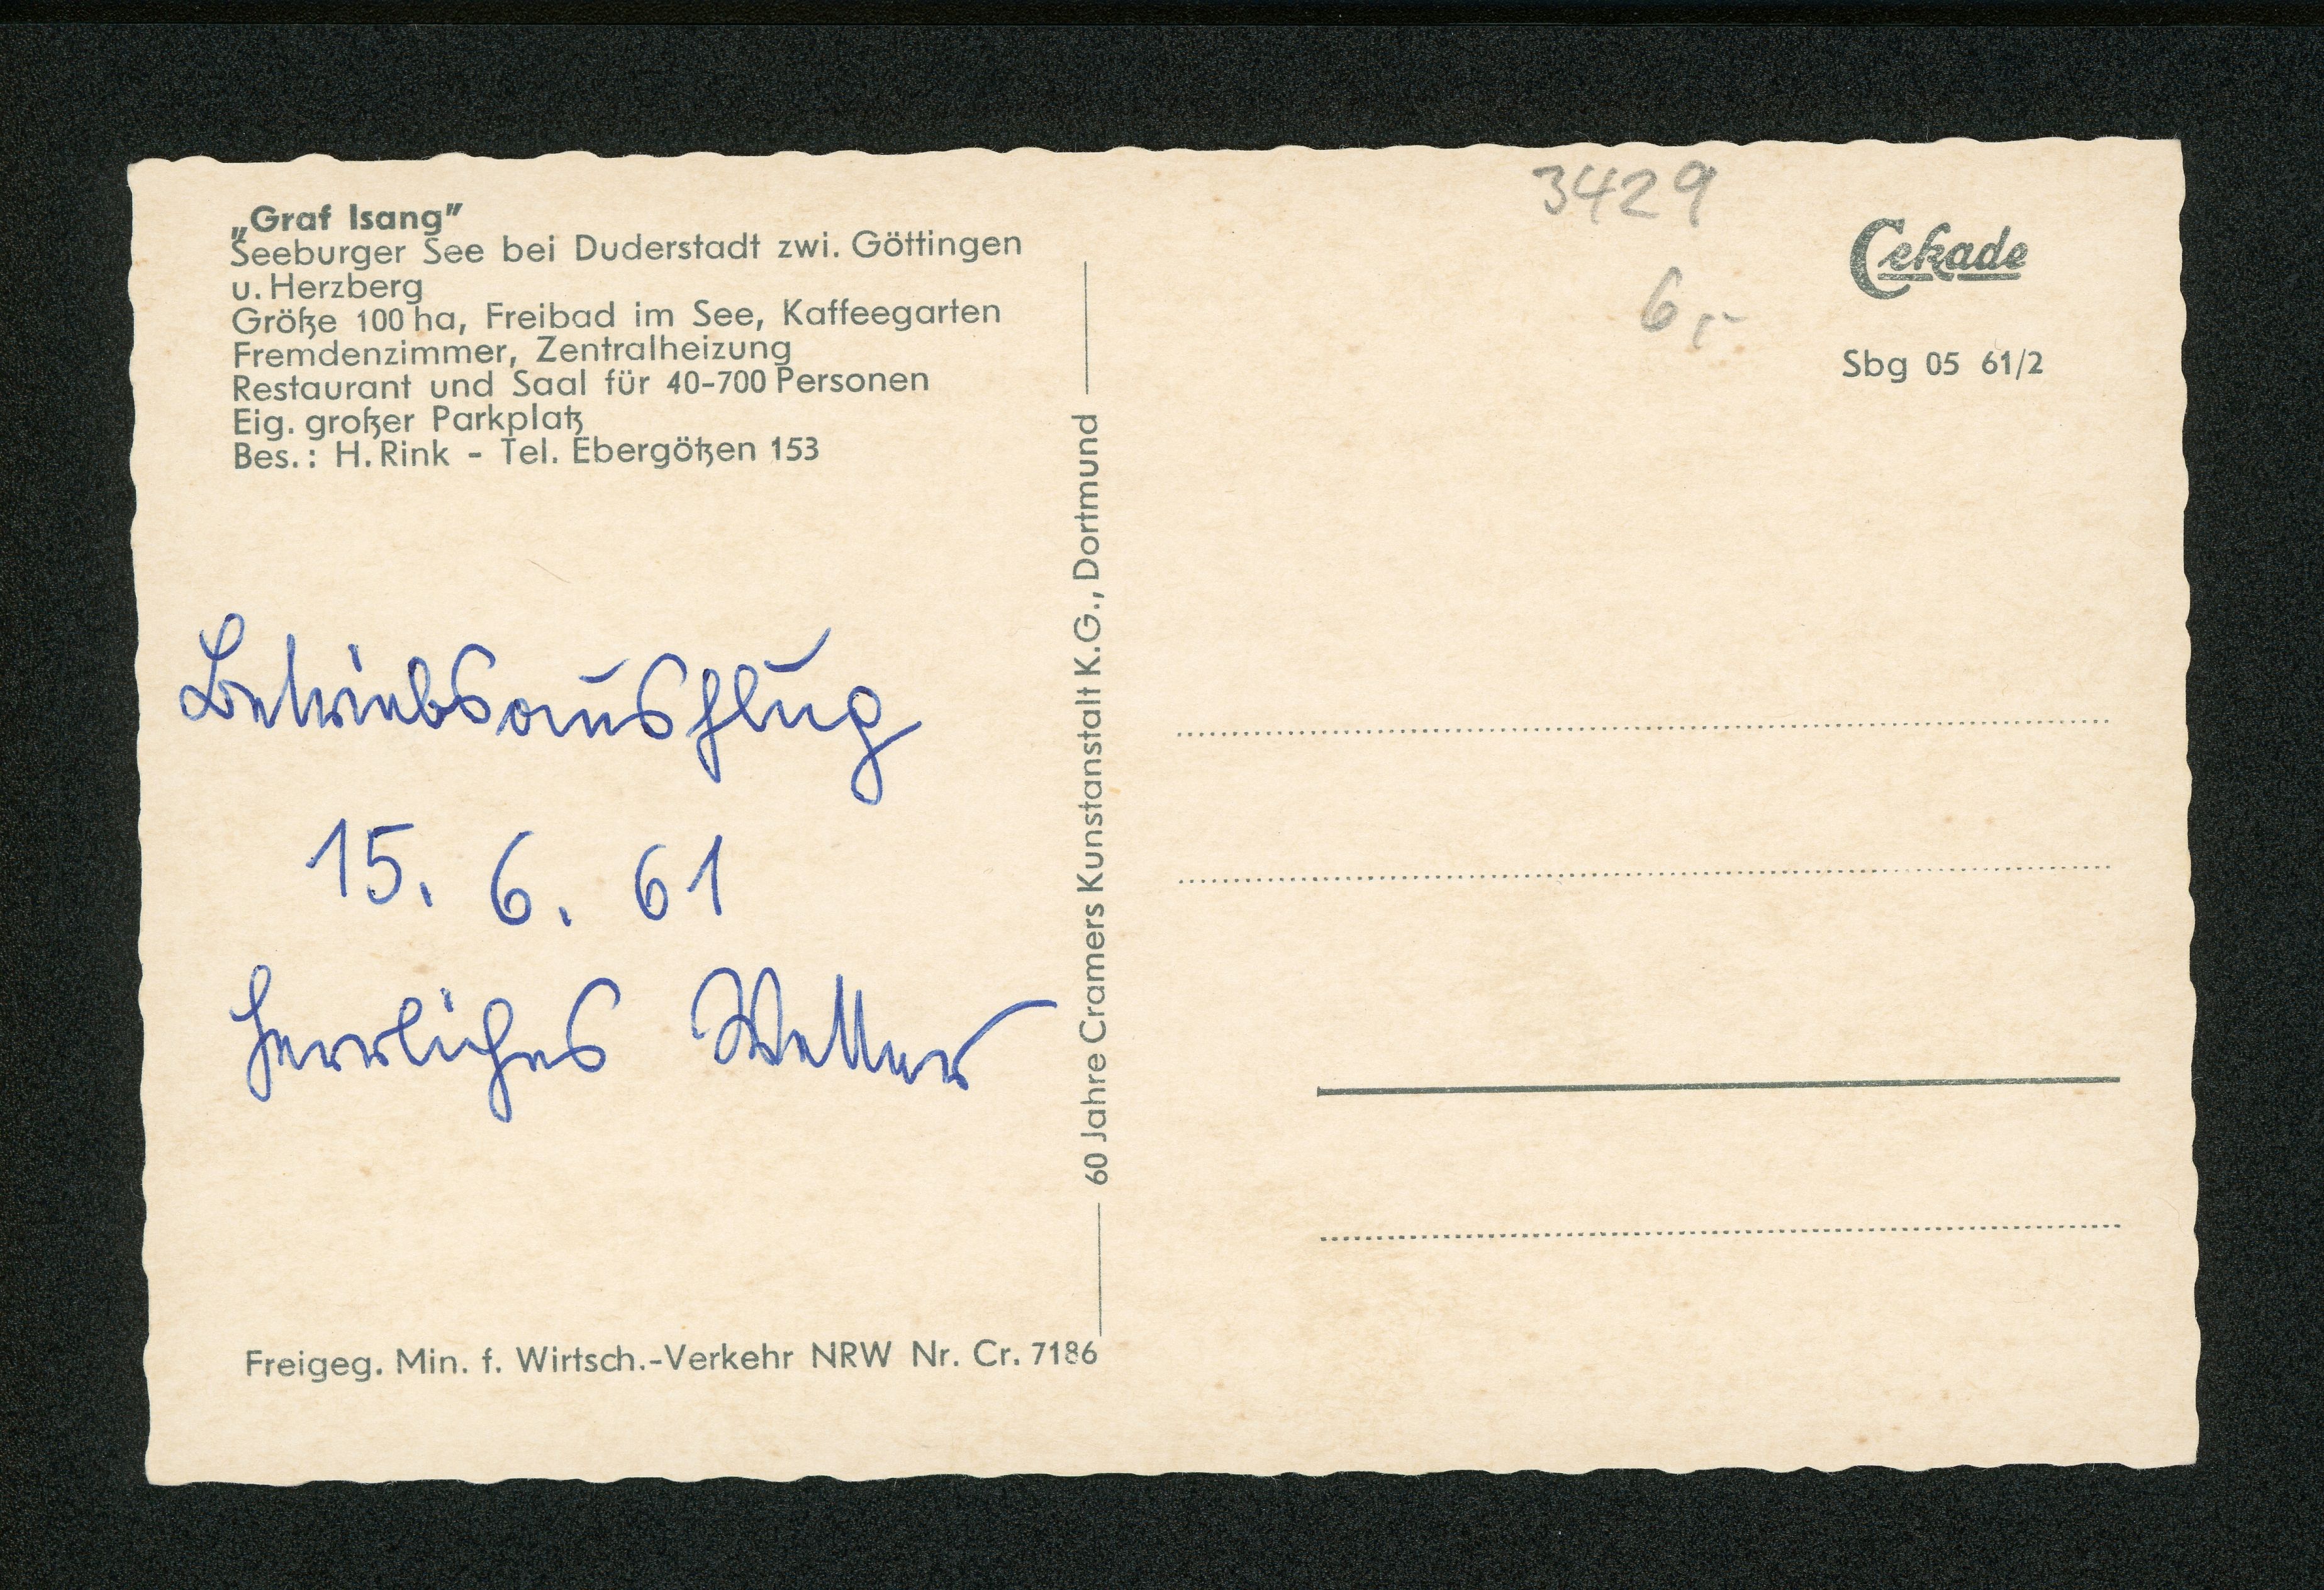 „Graf Isang"
Seeburger See bei Duderstadt zwi. Göttingen
u. Herzberg
Größe 100 ha, Freibad im See, Kaffeegarten
Fremdenzimmer, Zentralheizung
Restaurant und Saal für 40-700 Personen
Eig. großer Parkplatz
Bes.: H. Rink - Tel. Ebergötzen 153
Betriebsausflug
15. 6. 61
herrliches Wetter
Freigeg. Min. f. Wirtsch.-Verkehr NRW Nr. Cr. 7186
60 Jahre Cramers Kunstanstalt K.G., Dortmund
3429
6,-
Cekade
Sbg 05 61/2